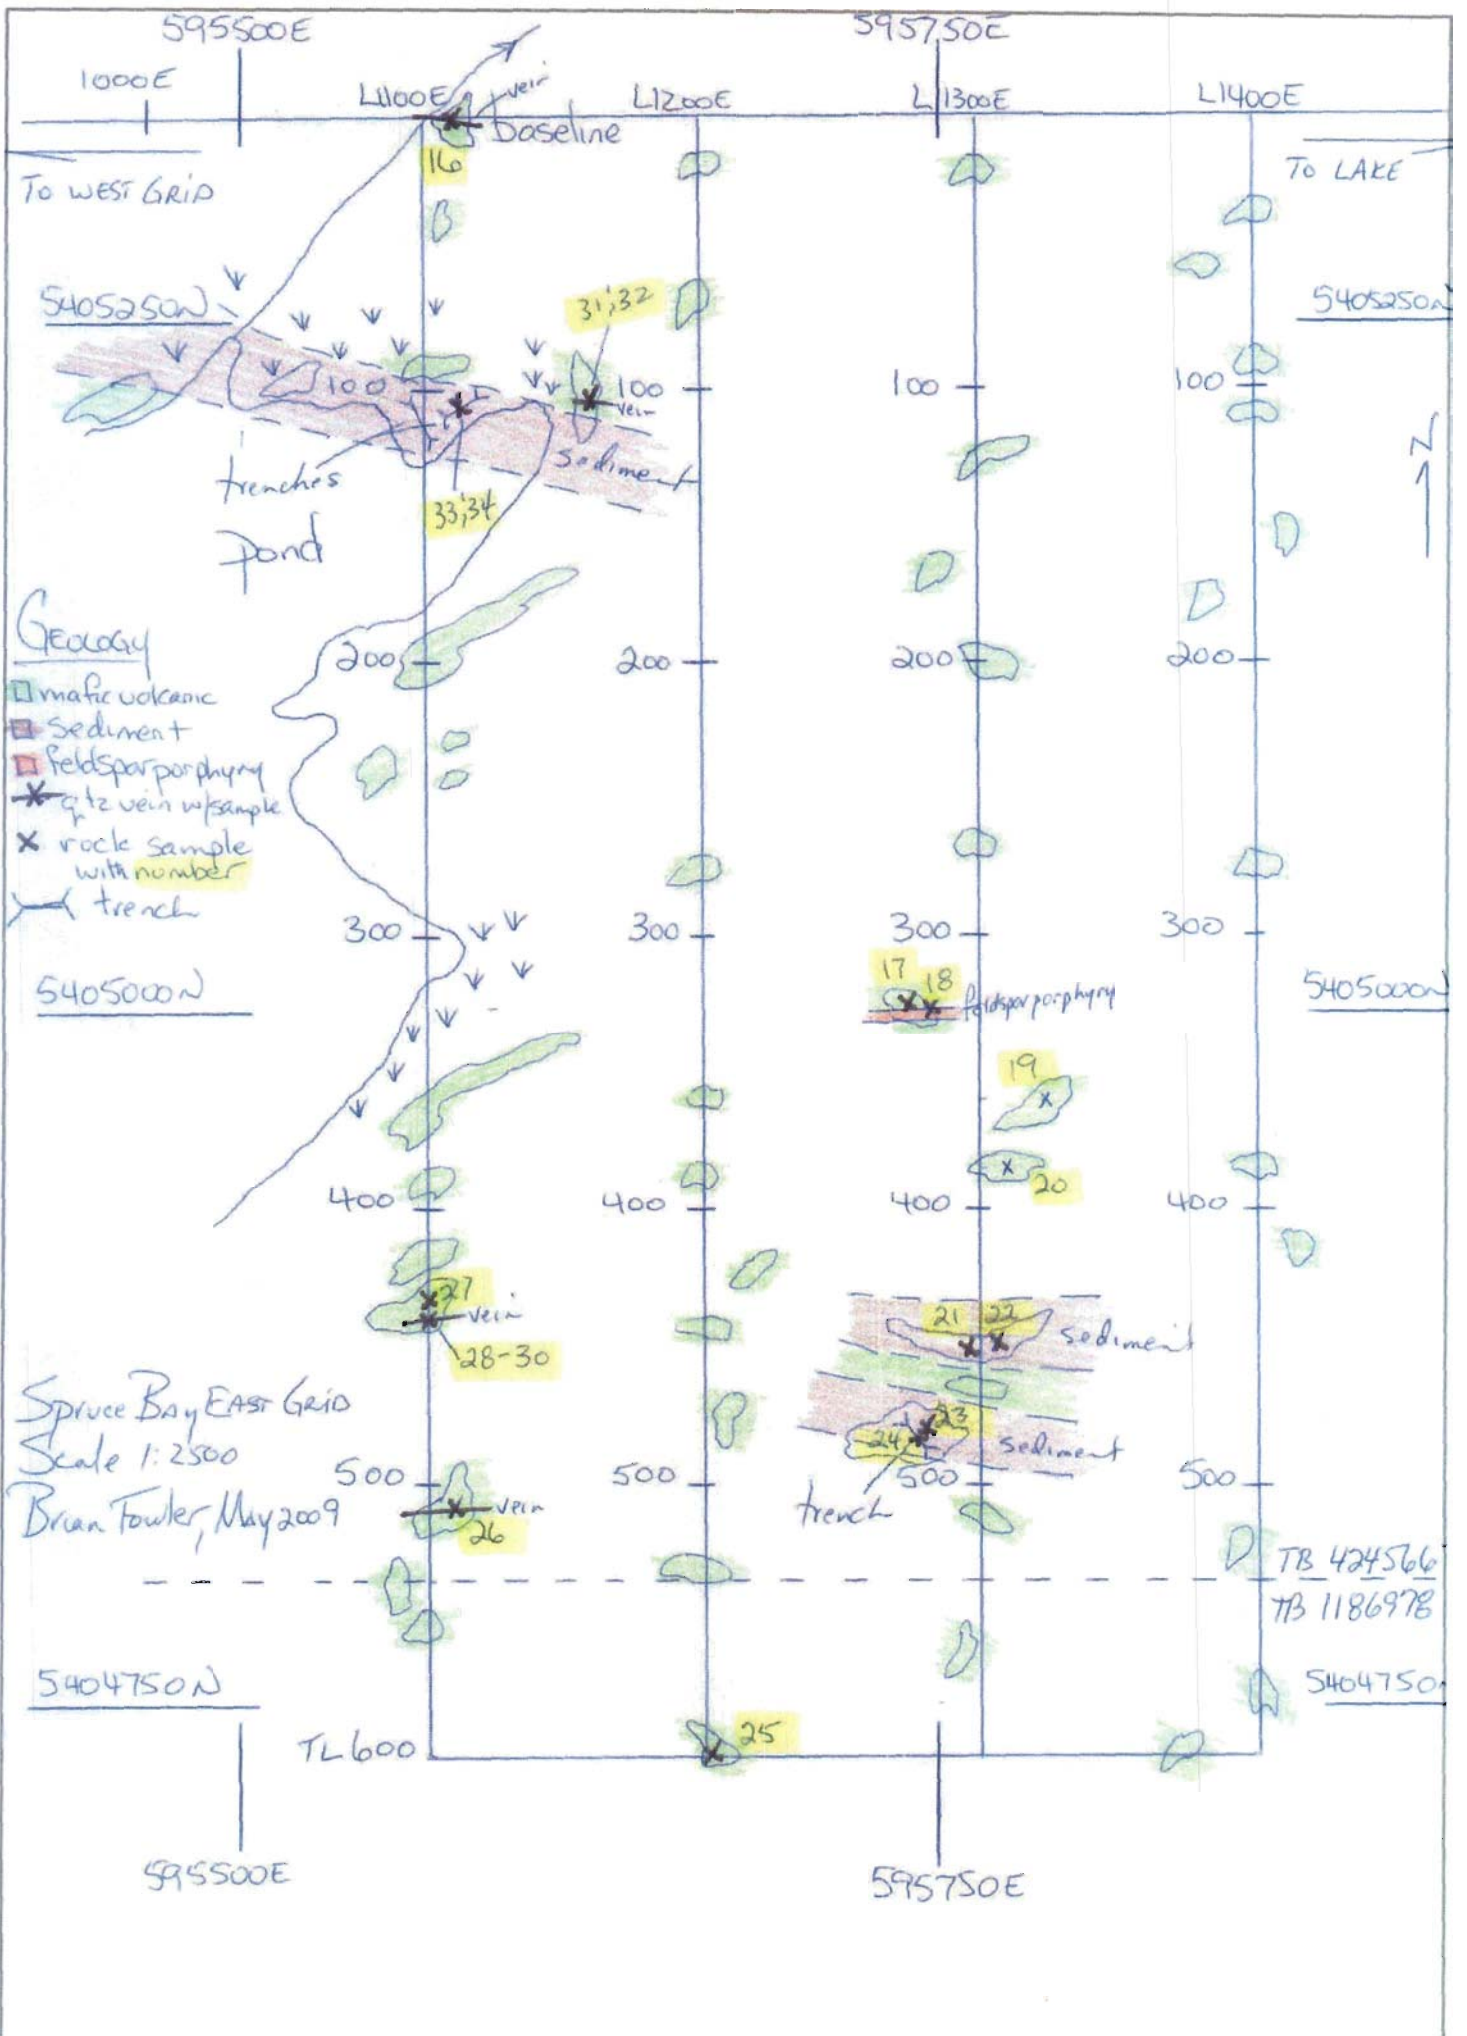 595500E
595750E
1000E
L1100E
vein
L1200E
L1300E
L1400E
baseline
16
To WEST GRID
To LAKE
5405250N
31,32
5405250N
100
100
100
100
vein
sediment
trenches
33,34
pond
N
GEOLOGY
mafic volcanic
sediment
feldspar porphyry
qtz vein w/sample
rock sample
with number
trench
200
200
200
200
300
300
300
300
5405000N
17
18
feldspar porphyry
5405000N
19
20
400
400
400
400
27
vein
28-30
21
22
sediment
23
24
sediment
trench
Spruce Bay EAST GRID
Scale 1:2500
Brian Fowler, May 2009
500
500
500
500
vein
26
TB 424566
TB 1186978
5404750N
5404750
TL600
25
595500E
595750E